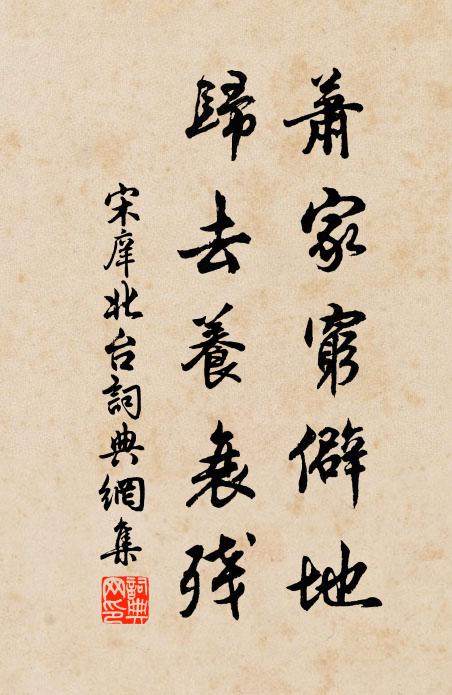 蕭家窮僻地
歸去養衰残
宋庠北台詞典網集
詞典网印